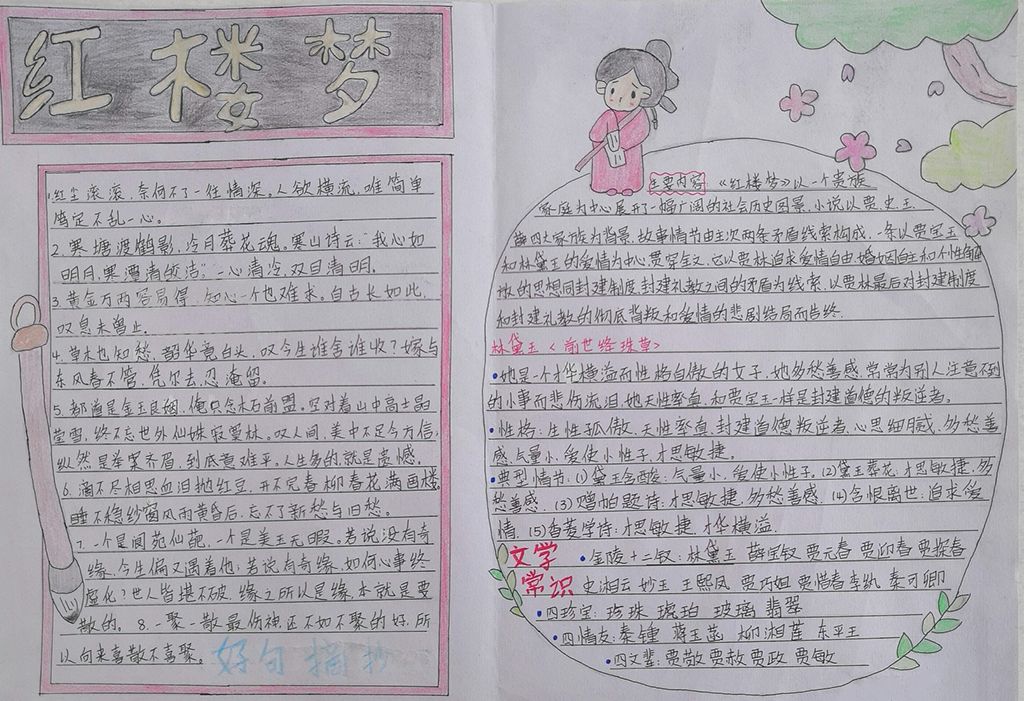 红楼梦
1.红尘滚滚,奈何不了一往情深。人欲横流,唯简单
笃定不乱一心。
2.寒塘渡鹤影,冷月葬花魂。寒山诗云:"我心如
明月,寒潭清皎洁。"一心清冷,双目清明。
3.黄金万两容易得,知心一个也难求。自古长如此,
叹息未曾止。
4.草木也知愁,韶华竟白头,叹今生谁舍谁收?嫁与
东风春不管,凭尔去,忍淹留。
5.都道是金玉良姻,俺只念木石前盟。空对着山中高士晶
莹雪,终不忘世外仙姝寂寞林。叹人间,美中不足今方信,
纵然是举案齐眉,到底意难平。人生多的就是遗憾。
6.滴不尽相思血泪抛红豆,开不完春柳春花满画楼,
睡不稳纱窗风雨黄昏后,忘不了新愁与旧愁。
7.一个是阆苑仙葩,一个是美玉无暇。若说没有奇
缘,今生偏又遇着他;若说有奇缘,如何心事终
虚化?世人皆堪不破,缘之所以是缘,本就是要
散的。8.一聚一散最伤神,还不如不聚的好,所
以向来喜散不喜聚。
好句摘抄
主要内容 《红楼梦》以一个贵族
家庭为中心展开了一幅广阔的社会历史图景,小说以贾史王
薛四大家族为背景,故事情节由主次两条矛盾线索构成。一条以贾宝玉
和林黛玉的爱情为中心贯穿全文,它以贾林追求爱情自由,婚姻自主和个性解
放的思想同封建制度,封建礼教之间的矛盾为线索,以贾林最后对封建制度
和封建礼教的彻底背叛和爱情的悲剧结局而告终.
林黛玉《前世绛珠草》
•她是一个才华横溢而性格自傲的女子,她多愁善感,常常为别人注意不到
的小事而悲伤流泪,她天性率真,和贾宝玉一样是封建道德的叛逆者。
•性格:生性孤傲,天性率真,封建道德叛逆者,心思细腻,多愁善
感,气量小,爱使小性子,才思敏捷。
•典型情节:(1)黛玉含酸:气量小,爱使小性子,(2)黛玉葬花:才思敏捷,多
愁善感.(3)赠帕题诗:才思敏捷,多愁善感.(4)含恨离世:追求爱
情.(5)香菱学诗:才思敏捷,才华横溢.
文学
常识
•金陵十二钗:林黛玉 薛宝钗 贾元春 贾迎春 贾探春
史湘云 妙玉 王熙凤 贾巧姐 贾惜春 李纨 秦可卿
•四珍宝:珍珠 琥珀 玻璃 翡翠
•四情友:秦锺 蒋玉菡 柳湘莲 东平王
•四文辈:贾敬 贾赦 贾政 贾敏